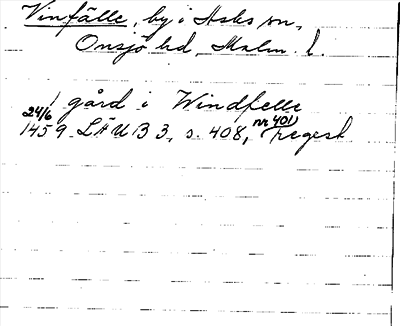 Vinfälle, by i Asks sn,
Onsjö hd, Malm. l.
1 gård i Windfelle
24/6 1459 LÄUB 3, s. 408, nr 401, regest